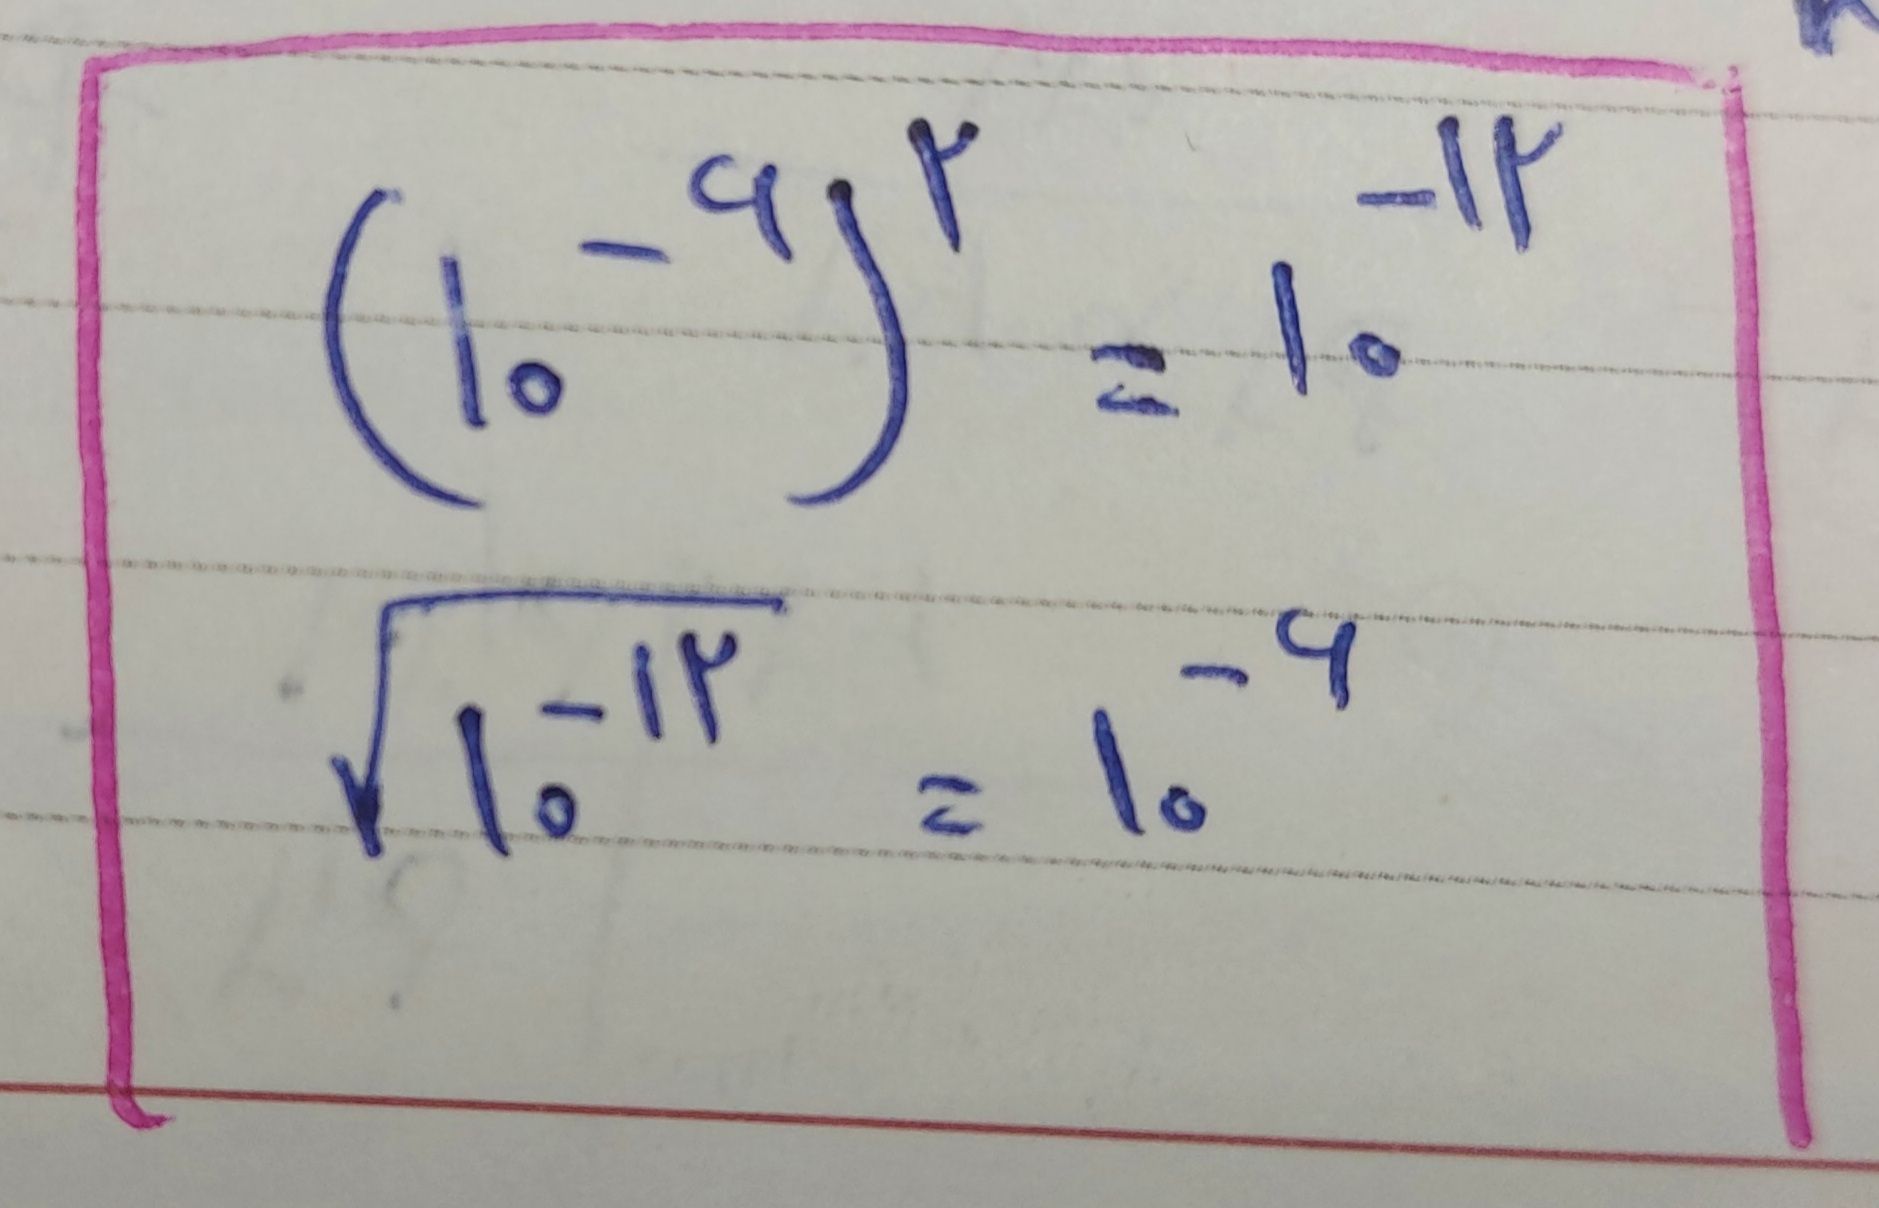 (۱۰^-۶)^۲ = ۱۰^-۱۲
√۱۰^-۱۲ = ۱۰^-۶